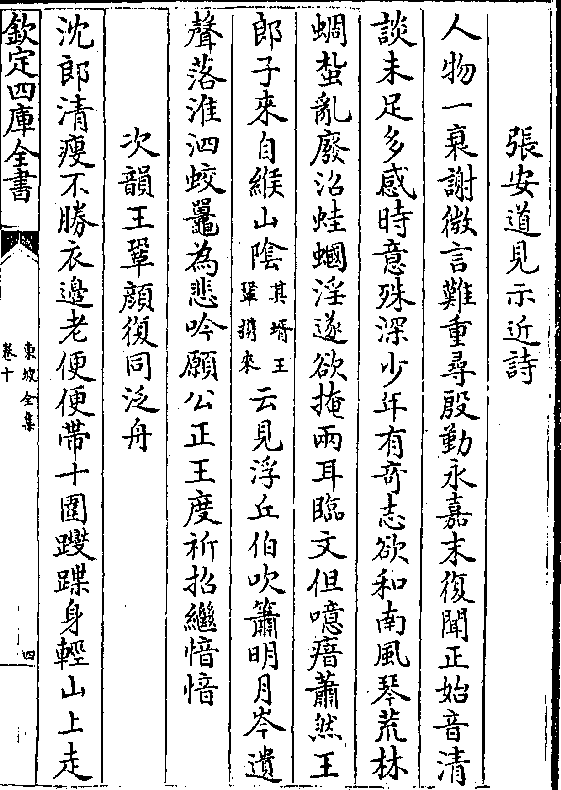 張安道見示近詩
人物一衰謝微言難重尋殷勤永嘉末復聞正始音清
談未足多感時意殊深少年有奇志欲和南風琴荒林
蜩蛰亂廢沼蛙蟈淫遂欲掩兩耳臨文但噫瘖蕭然王
郎子來自緱山陰其壻王鞏擕來云見浮丘伯吹簫明月岑遺
聲落淮泗蛟鼉為悲吟願公正王度祈招繼愔愔
次韻王鞏顔復同泛舟
沈郎清瘦不勝衣邊老便便帶十圍躞蹀身輕山上走
欽定四庫全書
東坡全集
卷十
四